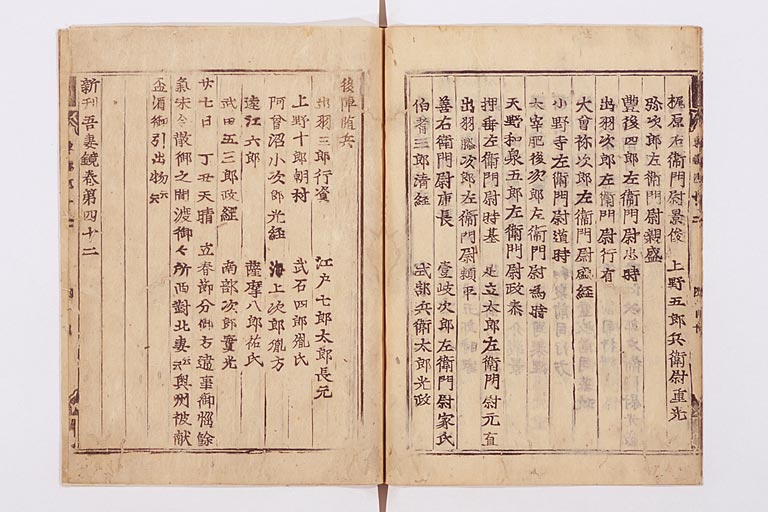 梶原右衛門尉景俊　上野五郎兵衛尉重光
弥次郎左衛門尉親盛
豊後四郎左衛門尉忠時
出羽次郎左衛門尉行有
大曾祢次郎左衛門尉盛経
小野寺左衛門尉道時
太宰肥後次郎左衛門尉為時
天野和泉五郎左衛門尉政泰
押垂左衛門尉時基　足立太郎左衛門尉元直
出羽藤次郎左衛門尉頼平
善右衛門尉康長　壹岐次郎左衛門尉家氏
伯耆三郎清経　武部兵衛太郎光政
後陣随兵
出羽三郎行資　江戸七郎太郎長元
上野十郎朝村　武石四郎胤氏
阿曾沼小次郎光経　海上次郎胤方
遠江六郎　薩摩八郎祐氏
武田五三郎政経　南部次郎實光
廿七日　丁丑天晴　立春節分御方違事御悩餘
氣未令散御之間渡御々所西對北妻云云奥州被献
盃酒御引出物云云
新刊吾妻鏡巻第四十二